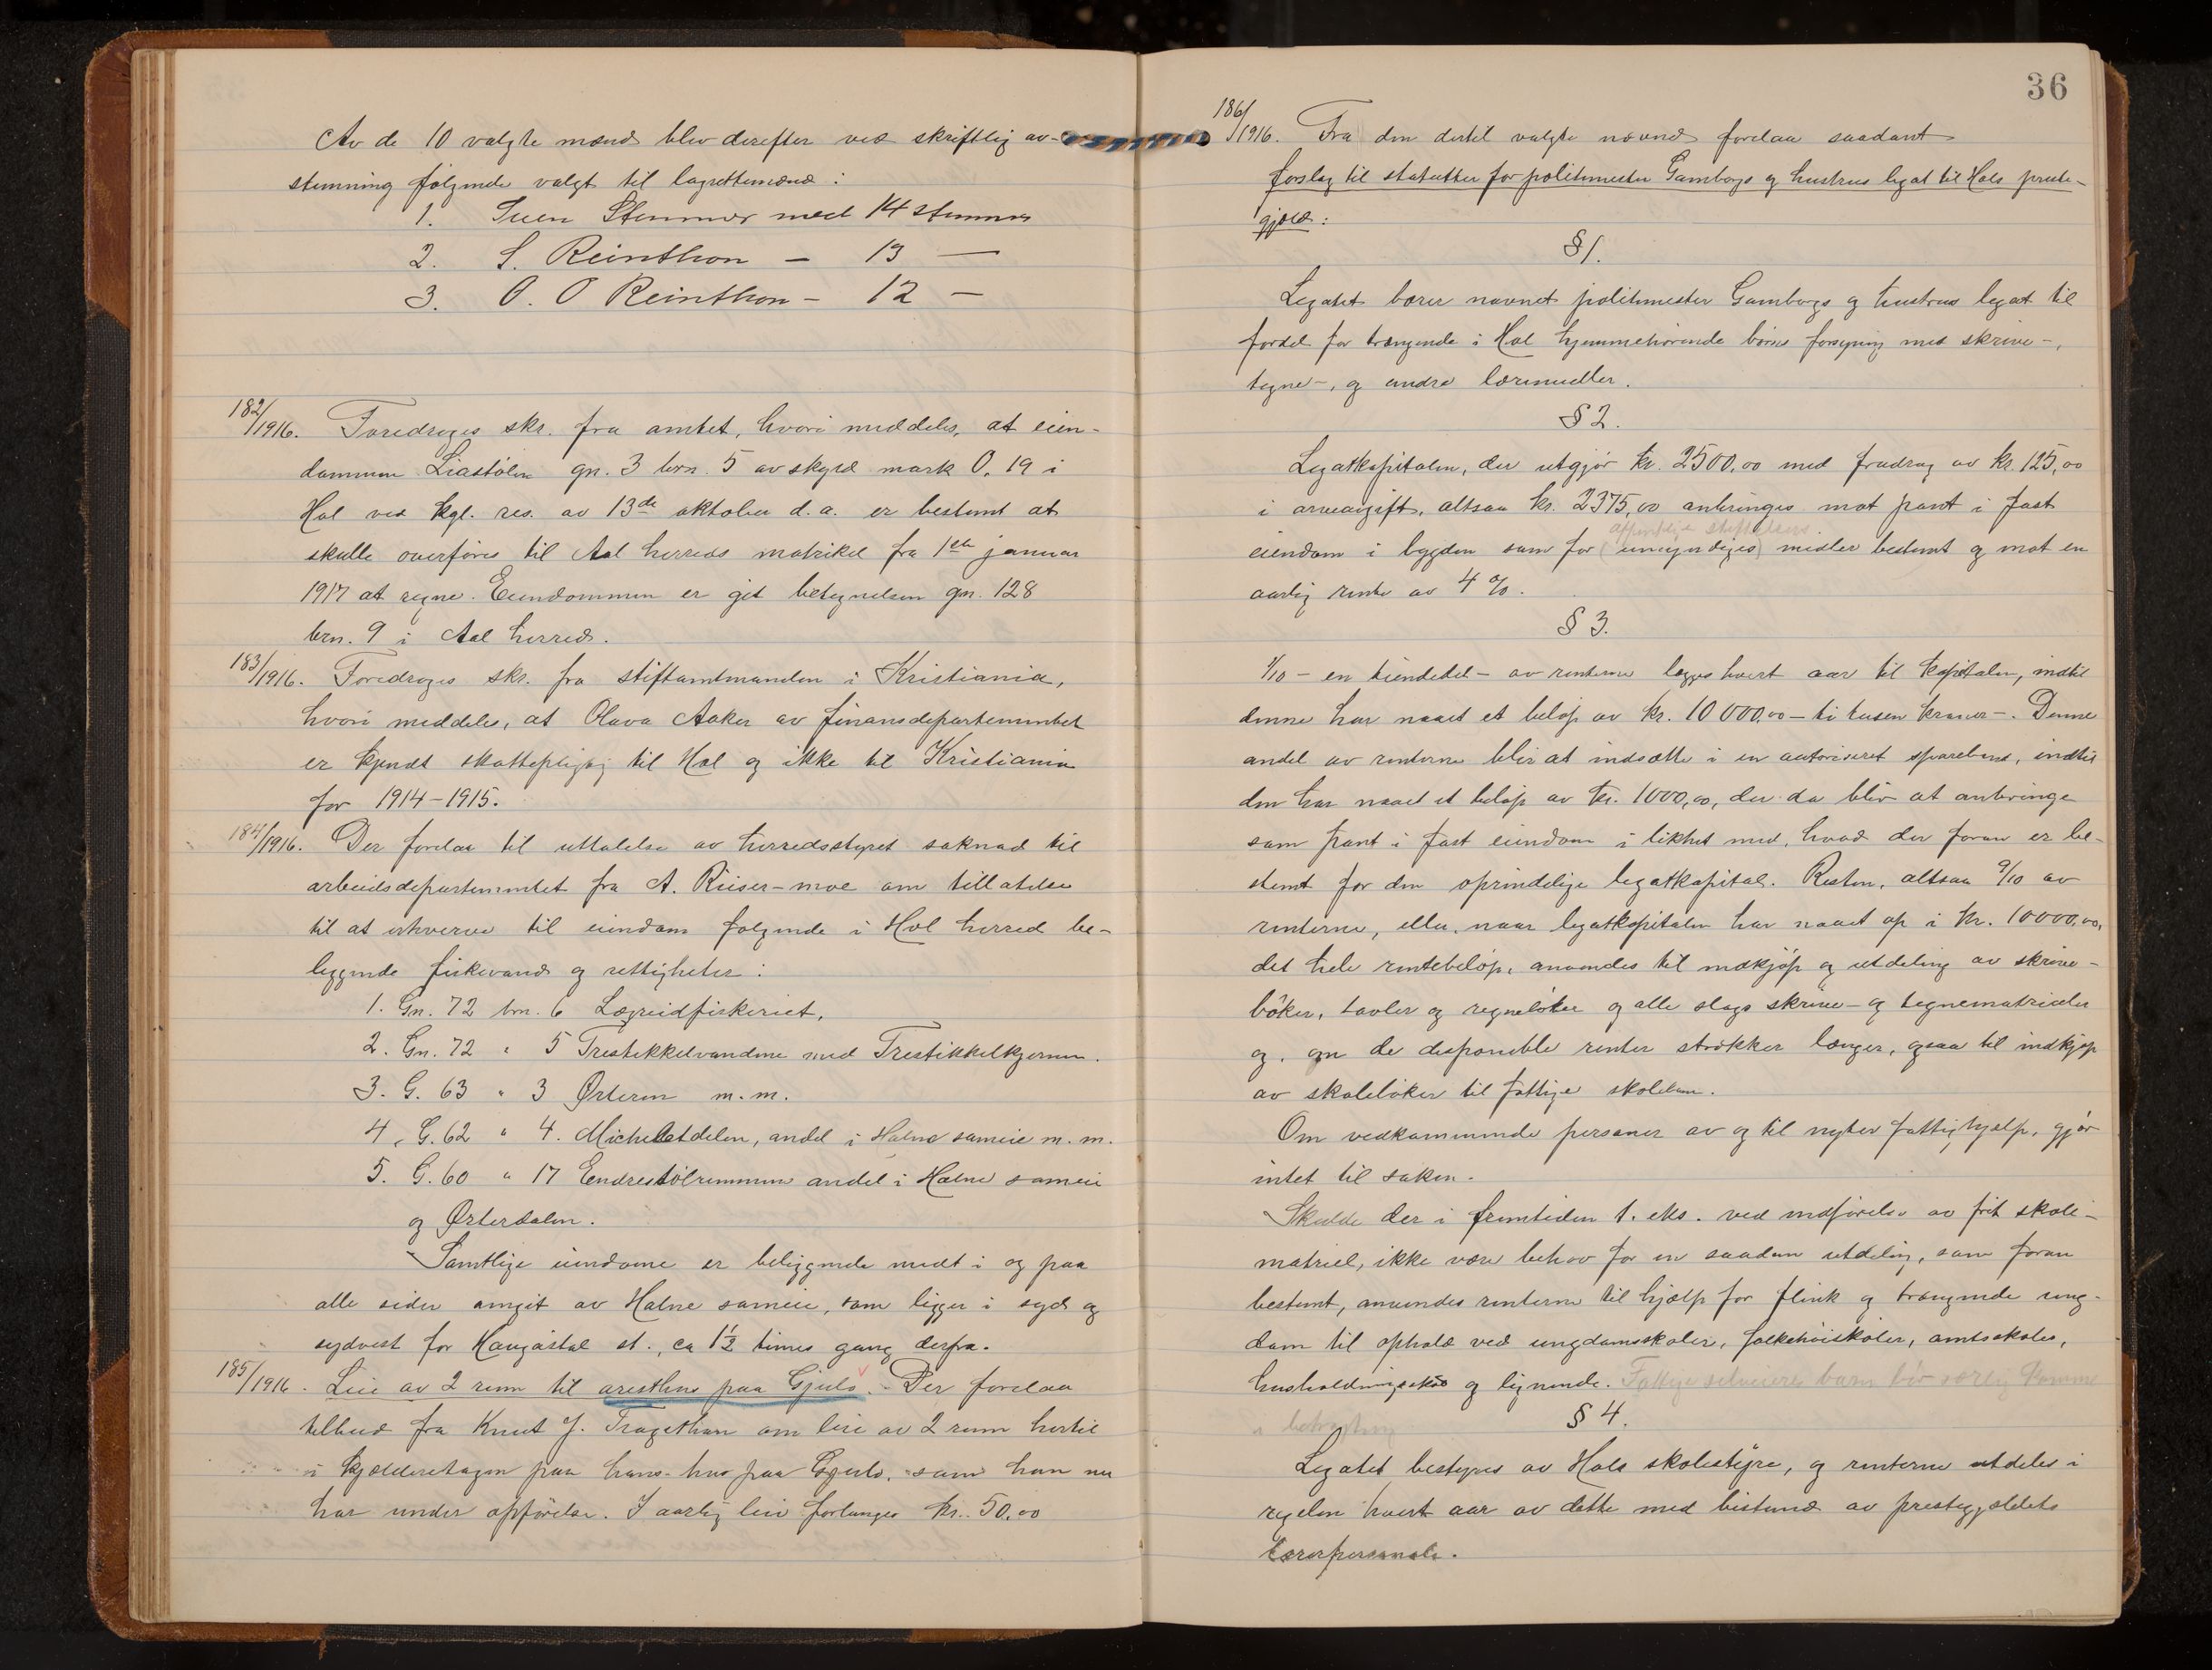 Av de 10 valgte mænd blev derefter ved skriftlig av-
stemning følgende valgt til lagrettemænd:
1. Sven Stemmer med 14 stemmer
2. S. Reinthon — 13 —
3. O. O Reinthon — 12 —
182/1916. Foredroges skr. fra amtet, hvori meddeles, at eien-
dommen Liastølen gn. 3 brn. 5 av skyld mark 0,19 i
Hol ved kgl. res. av 13de oktober d. a. er bestemt at
skulle overføres til Aal herreds matrikel fra 1ste januar
1917 at regne. Eiendommen er git betegnelsen gn. 128
brn. 9 i Aal herred.
183/1916. Foredroges skr. fra stiftamtmanden i Kristiania,
hvori meddeles, at Olava Aaker av finansdepartementet
er kjendt skattepligtig til Hol og ikke til Kristiania
for 1914-1915.
184/1916. Der forelaa til uttalelse av herredsstyret søknad til
arbeidsdepartementet fra A. Riiser-moe om tillatelse
til at erhverve til eiendom følgende i Hol herred be-
liggende fiskevand og rettigheter:
1. Gn. 72 brn. 6 Lægreidfiskeriet,
2. Gn. 72 " 5 Trestikkelvandene med Trestikkelkjernen.
3. G. 63 " 3 Ørteren m.m.
4. G. 62 " 4. Michelbetdelen, andel i Halne sameie m.m.
5. G. 60 " 17 Endrestølremmen andel i Halne sameie
og Ørterdalen.
Samtlige eiendome er beliggende midt i og paa
alle sider omgit av Halne sameie, som ligger i syd og
sydvest for Haugastøl st., ca 1½ times gang derfra.
185/1916. Leie av 2 rum til aresthus paa Gjeilo. Der forelaa
tilbud fra Knut J. Tragethon om leie av 2 rum hertil
i kjælderetagen paa hans hus paa Gjeilo, som han nu
har under opførelse. I aarlig leie forlanges kr. 50,00
36
186/1916. Fra den dertil valgte nævnd forelaa saadant
forslag til statutter for politimester Gambergs og hustrus legat til Hols preste-
gjæld:
§ 1.
Legatet bærer navnet politimester Gambergs og hustrus legat til
fordel for trængende i Hol hjemmehørende børns forsyning med skrive-,
tegne-, og andre læremidler.
§ 2.
Legatkapitalen, der utgjør kr. 2500,00 med fradrag av kr. 125,00
i arveavgift, altsaa kr. 2375,00 anbringes mot pant i fast
offentlige stiftelsers
eiendom i bygden som for (umyndiges) midler bestemt og mot en
aarlig rente av 4 %.
§ 3.
1/10 - en tiendedel - av renterne lægges hvert aar til kapitalen, indtil
denne har naaet et beløp av kr. 10 000,00 - ti tusen kroner -. Denne
andel av renterne blir at indsætte i en autoriseret sparebank, indtil
den har naaet et beløp av kr. 1000,00, der da blir at anbringe
som pant i fast eiendom i likhet med, hvad der foran er be-
stemt for den oprindelige legatkapital. Resten, altsaa 9/10 av
renterne, eller, naar legatkapitalen har naaet op i kr. 10000,00,
det hele rentebeløp, anvendes til indkjøp og utdeling av skrive-
bøker, tavler og regnebøker og alle slags skrive- og tegnematerialer
og, om de disponible renter strækker længer, ogsaa til indkjøp
av skolebøker til fattige skolebarn.
Om vedkommende personer av og til nyter fattighjælp, gjør
intet til saken.
Skulde der i fremtiden t. eks. ved indførelse av frit skole-
matriel, ikke være behov for en saadan utdeling, som foran
bestemt, anvendes renterne til hjælp for flink og trængende ung-
dom til ophold ved ungdomsskoler, folkehøiskoler, amtsskoler,
husholdningsskole og lignende. Fattige selveieres barn bør særlig komme
i betragtning
§ 4.
Legatet bestyres av Hols skolestyre, og renterne utdeles i
regelen hvert aar av dette med bistand av prestegjældets
lærerpersonale.